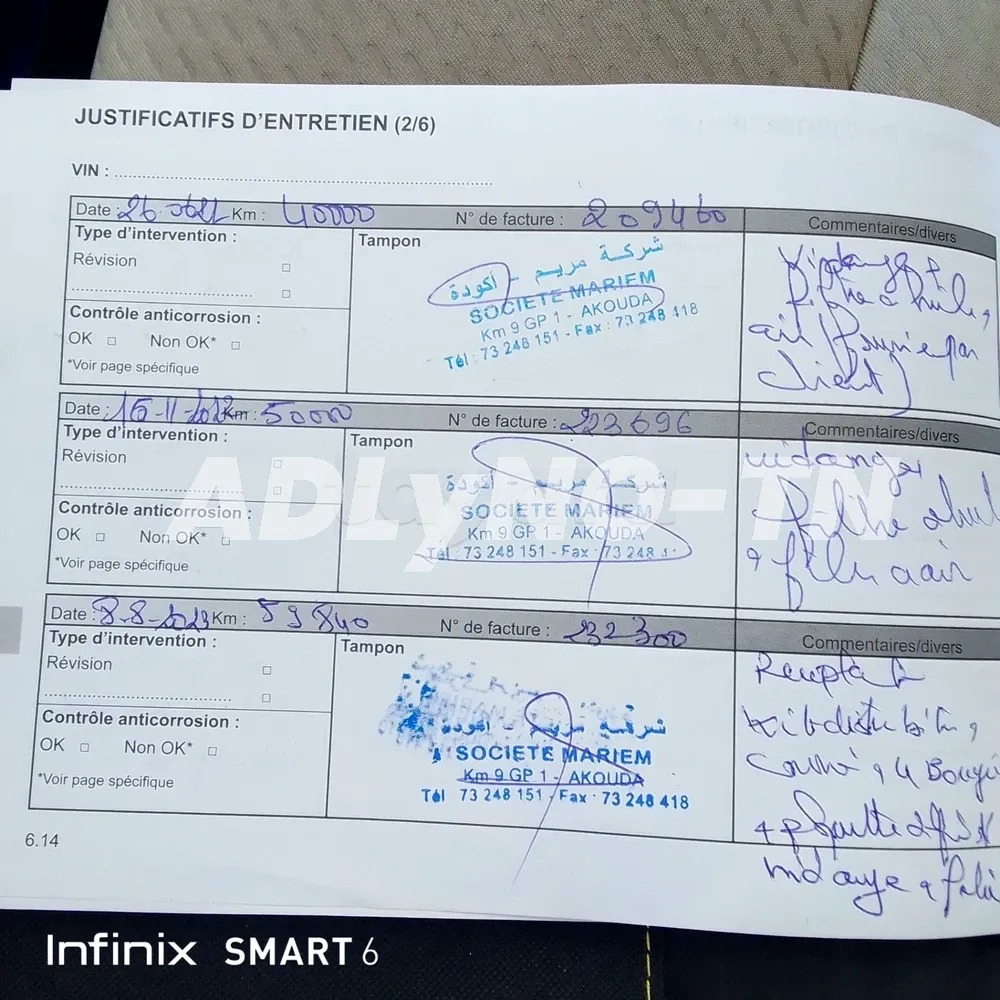 JUSTIFICATIFS D'ENTRETIEN (2/6)
VIN :
Date : Km : 40000 N° de facture : 209460 Commentaires/divers
Type d'intervention :
Révision
Contrôle anticorrosion :
OK Non OK*
*Voir page spécifique
Tampon
شركة مريم - أكودة
SOCIETE MARIEM
Km 9 GP 1 - AKOUDA
Tél : 73 248 151 - Fax : 73 248 418
client)
Date : Km : 50000 N° de facture : 223696 Commentaires/divers
Type d'intervention :
Révision
Contrôle anticorrosion :
OK Non OK*
*Voir page spécifique
Tampon
شركة مريم - أكودة
SOCIETE MARIEM
Km 9 GP 1 - AKOUDA
Tél : 73 248 151 - Fax : 73 248
vidange
a air
ADLyNO-TN
Date : 8-8-2023 Km : 59840 N° de facture : 232300 Commentaires/divers
Type d'intervention :
Révision
Contrôle anticorrosion :
OK Non OK*
*Voir page spécifique
Tampon
شركة مريم - أكودة
SOCIETE MARIEM
Km 9 GP 1 - AKOUDA
Tél 73 248 151 - Fax : 73 248 418
6.14
Infinix SMART 6